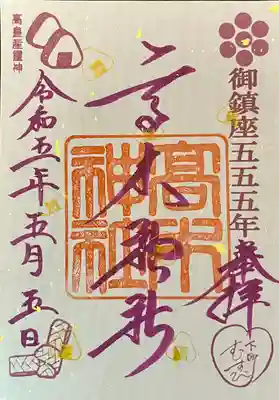 御鎮座五五五年
奉拝
下町
むすび
高木神社
高木
神社
高皇産靈神
令和五年五月五日